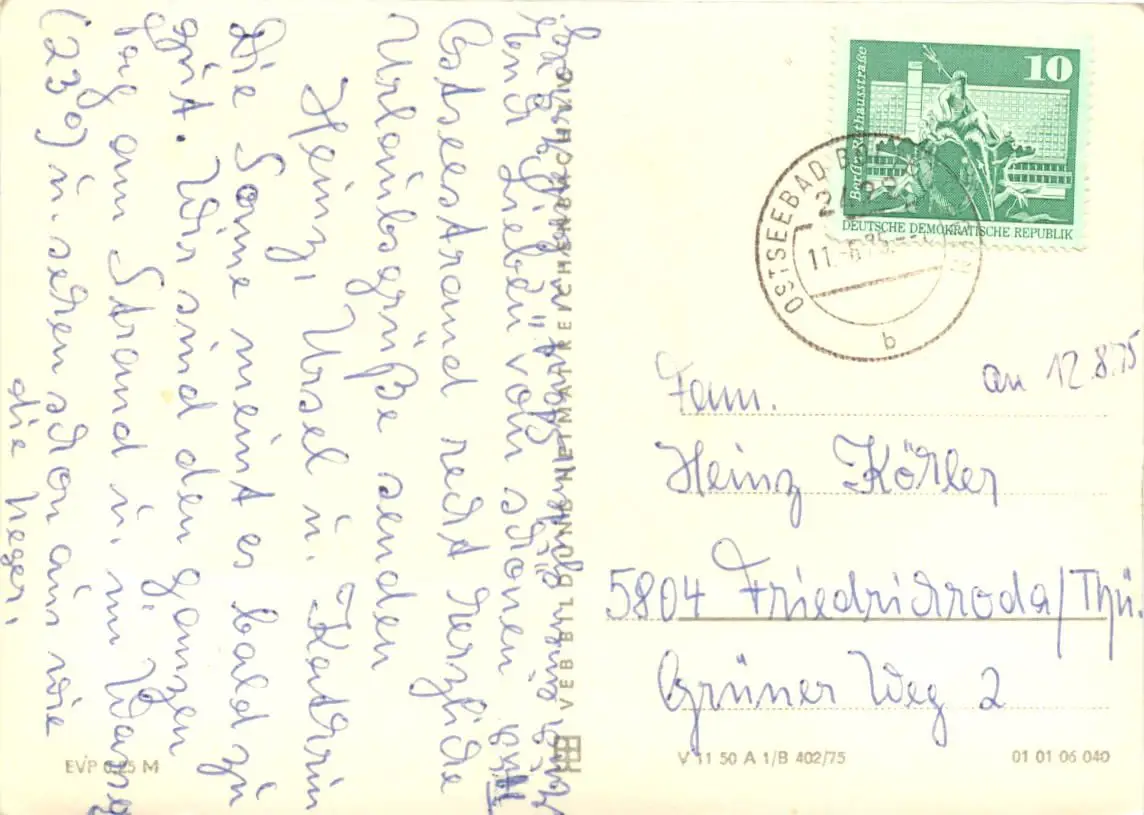 Ihr
Euch Lieben vom schönen
Ostseestrand recht herzliche
Urlaubsgrüße senden
Heinz, Ursel u. Katrin
Die Sonne meint es bald zu
gut. Wir sind den ganzen
Tag am Strand u. im Wasser
(23°) u. sehen schon aus wie
die Neger.
VEB BILD UND HEIMAT REICHENBACH I. V.
EVP 0,25 M
10
Berlin, Rathausstraße
DEUTSCHE DEMOKRATISCHE REPUBLIK
OSTSEEBAD
b
an 12.8.75
Fam.
Heinz Köhler
5804 Friedrichroda/Thü.
Grüner Weg 2
V 11 50 A 1/B 402/75
01 01 06 040